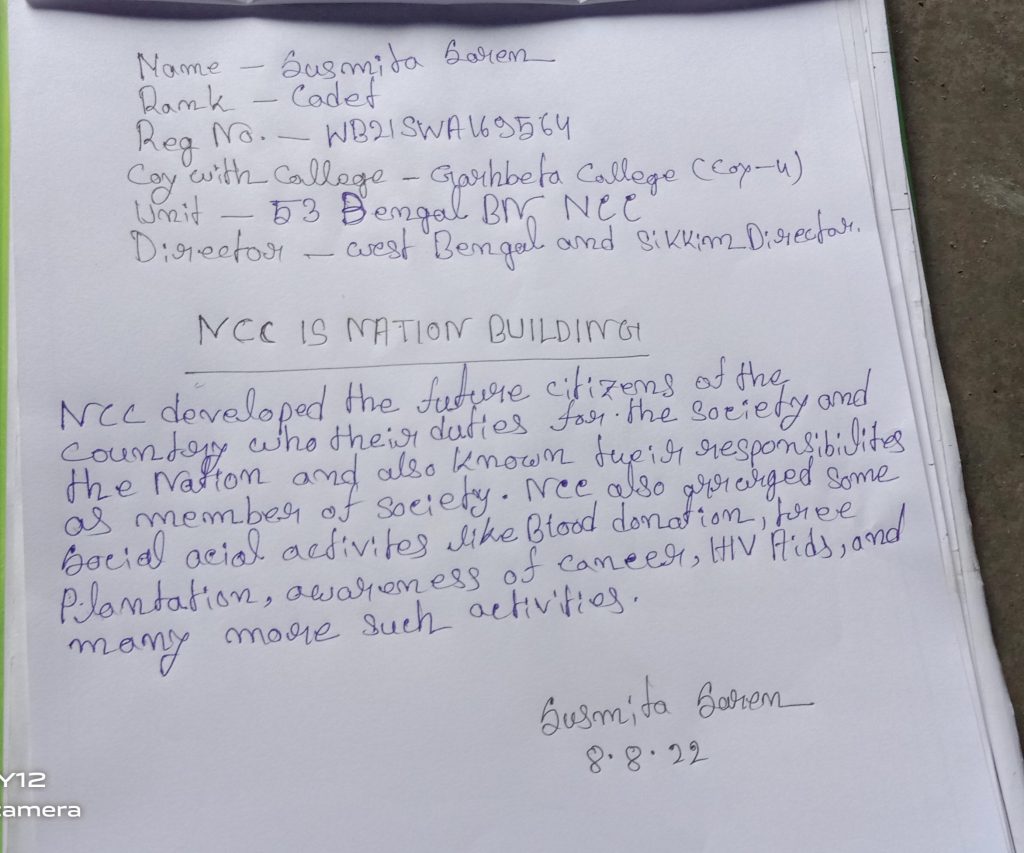 Name - Susmita Saren
Rank - Cadet
Reg No. - WB21SWA169564
Coy with College - Garhbeta College (Coy-4)
Unit - 53 Bengal BN NCC
Director - west Bengal and Sikkim Director.
NCC IS NATION BUILDING
NCC developed the future citizens of the
country who their duties for the society and
the Nation and also known their responsibilites
as member of society. Ncc also arranged some
social acial activites like Blood donation, tree
Plantation, awareness of cancer, HIV Aids, and
many more such activities.
Susmita Saren
8.8.22
Y12
camera